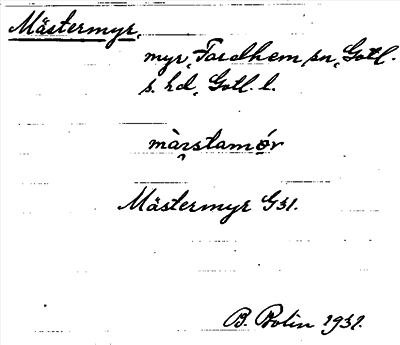 Mästermyr,
myr, Fardhem sn, Gotl.
s. hd, Gotl. l.
màrstamǿr
Mästermyr G31.
B. Bolin 1931.